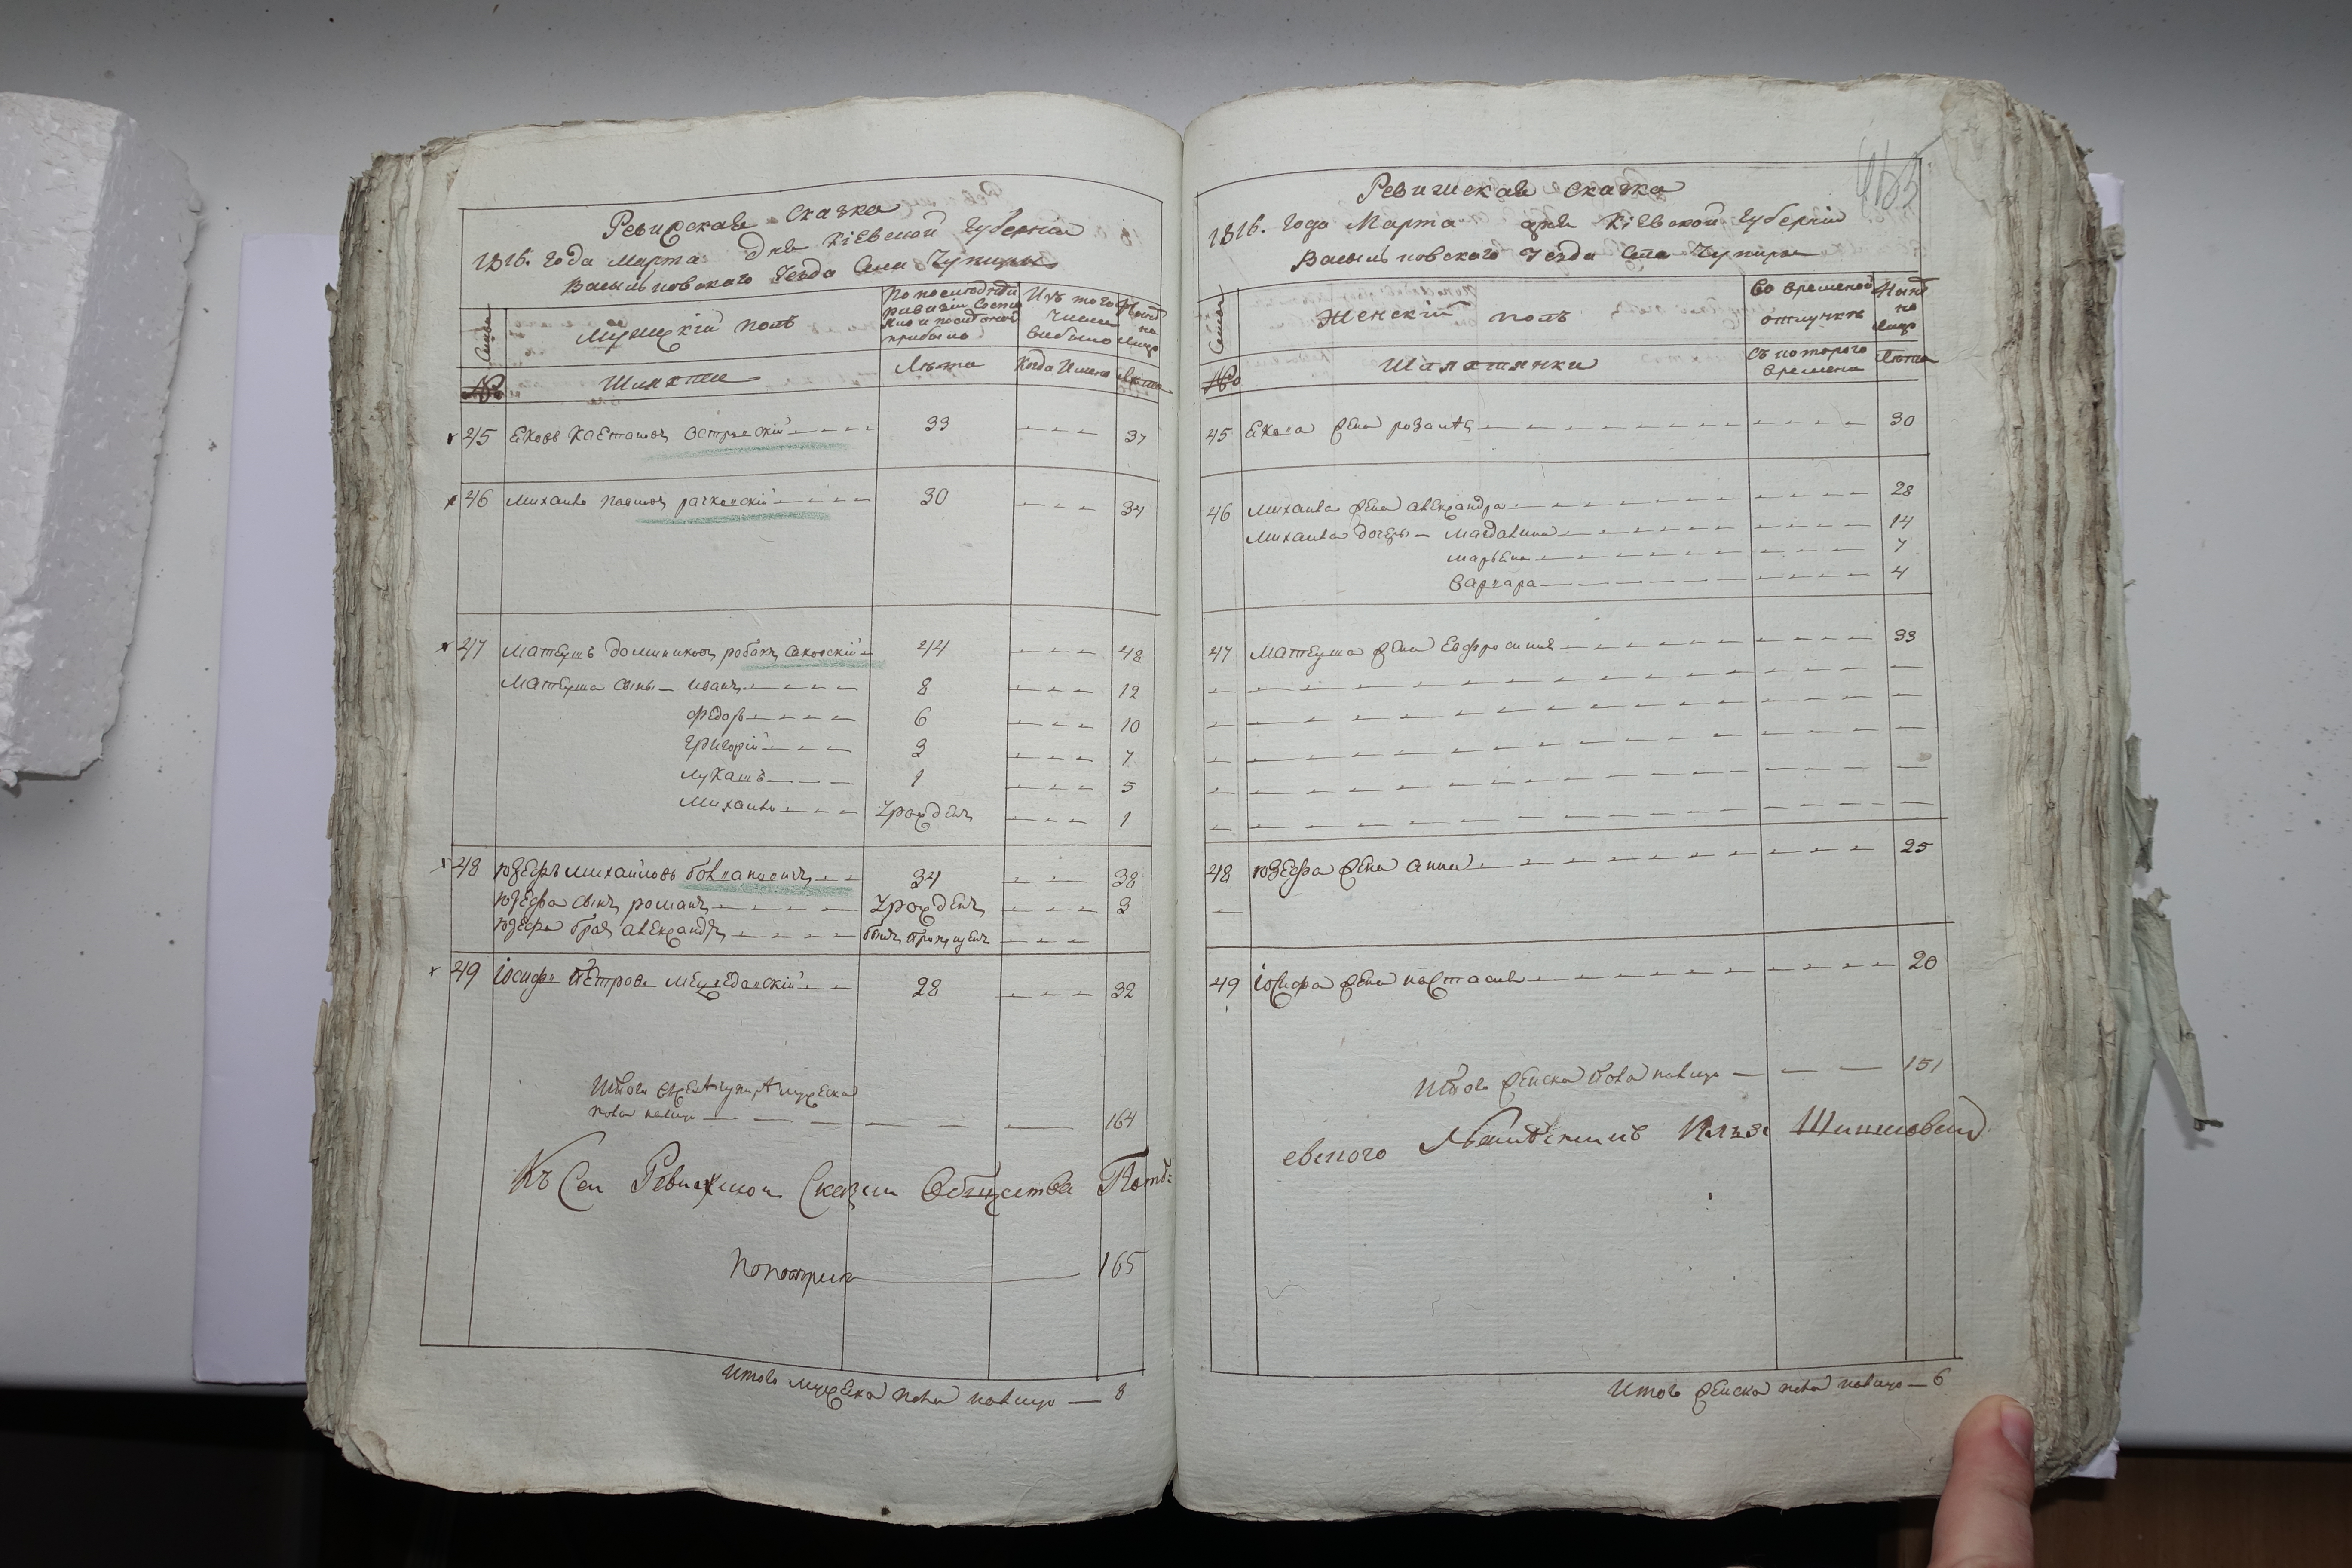 Ревижская Сказка
1816. года марта дня Кіевской Губерніи
Васильковского Уезда Села Чупиры
Семьи
Мужескій полъ
По последней ревизіи состояло и после оной прибыло
Изъ того числа выбыло
Ныне на лицо
№
Шляхта
Лета
Когда Имено
Лета
45 Яковъ Каетановъ Островскій 33 37
46 Михайло Павловъ рачковскій 30 34
47 Матеушъ Доминиковъ 44 48
Матеуша сыны Иванъ 8 12
Федоръ 6 10
Григорій 3 7
Лукашъ 1 5
Михайло Урожденъ 1
48 Юзефъ Михайловъ 34 38
Юзефа сынъ романъ Урожденъ 3
Юзефа братъ александръ былъ пропущенъ
49 Іосифъ Петровъ 28 32
Итого мужеска
пола налицо 164
Къ Сей Ревижской Сказки Общества
165
Итого мужеска пола налицо 8
463
Ревижская Сказка
1816. года Марта дня Кіевской Губерніи
Васильковского Уезда Села Чупиры
Семьи
Женскій полъ
Во временной отлучке
Ныне на лицо
№
Шляхтянки
Съ которого времени
Лета
45 Якова жена розалія 30
46 Михайла жена александра 28
Михайла дочеры Магдалина 14
Марьяна 7
Варвара 4
47 Матеуша жена Ефросинія 33
48 Юзефа жена анна 25
49 Іосифа жена настасія 20
Итого женска пола налицо 151
Итого женска пола налицо 6